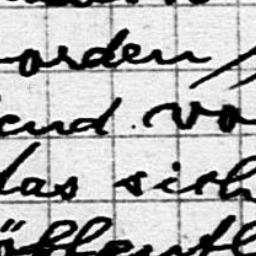 orden,
end. vo
das sich
öffentl